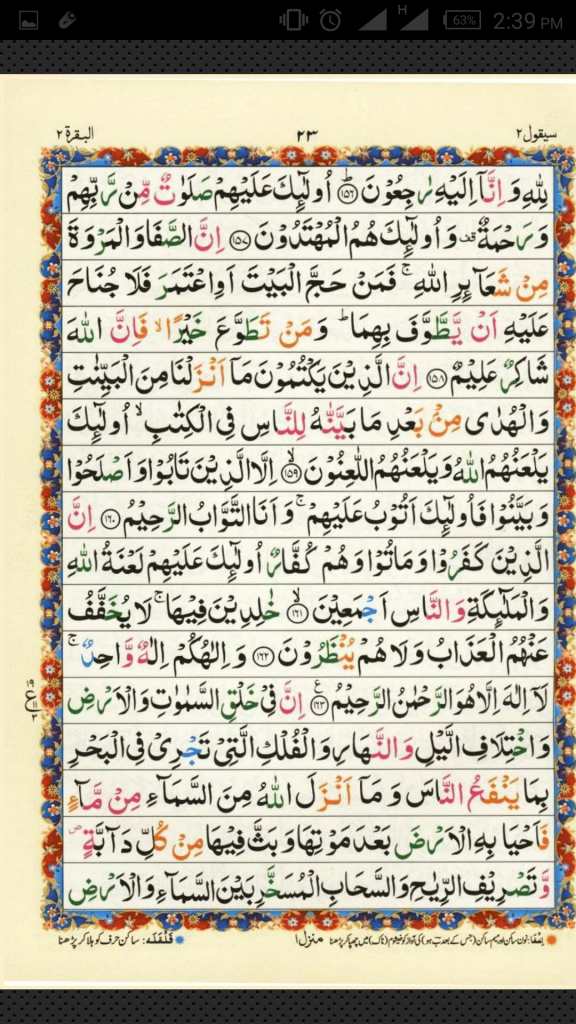 63% 2:39 PM
H
سيقول ٢ ٢٣ البقرة ٢
لِلّٰهِ وَاِنَّاۤ اِلَيْهِ رٰجِعُوْنَ ؕ﴿۱۵۶﴾ اُولٰٓئِكَ عَلَيْهِمْ صَلَوٰتٌ مِّنْ رَّبِّهِمْ
وَرَحْمَةٌ ۟ وَاُولٰٓئِكَ هُمُ الْمُهْتَدُوْنَ ﴿۱۵۷﴾ اِنَّ الصَّفَا وَالْمَرْوَةَ
مِنْ شَعَآئِرِ اللّٰهِ ۚ فَمَنْ حَجَّ الْبَيْتَ اَوِ اعْتَمَرَ فَلَا جُنَاحَ
عَلَيْهِ اَنْ يَّطَّوَّفَ بِهِمَا ؕ وَمَنْ تَطَوَّعَ خَيْرًا ۙ فَاِنَّ اللّٰهَ
شَاكِرٌ عَلِيْمٌ ﴿۱۵۸﴾ اِنَّ الَّذِيْنَ يَكْتُمُوْنَ مَاۤ اَنْزَلْنَا مِنَ الْبَيِّنٰتِ
وَالْهُدٰى مِنْۢ بَعْدِ مَا بَيَّنّٰهُ لِلنَّاسِ فِى الْكِتٰبِ ۙ اُولٰٓئِكَ
يَلْعَنُهُمُ اللّٰهُ وَيَلْعَنُهُمُ اللّٰعِنُوْنَ ۙ﴿۱۵۹﴾ اِلَّا الَّذِيْنَ تَابُوْا وَاَصْلَحُوْا
وَبَيَّنُوْا فَاُولٰٓئِكَ اَتُوْبُ عَلَيْهِمْ ۚ وَاَنَا التَّوَّابُ الرَّحِيْمُ ﴿۱۶۰﴾ اِنَّ
الَّذِيْنَ كَفَرُوْا وَمَاتُوْا وَهُمْ كُفَّارٌ اُولٰٓئِكَ عَلَيْهِمْ لَعْنَةُ اللّٰهِ
وَالْمَلٰٓئِكَةِ وَالنَّاسِ اَجْمَعِيْنَ ۙ﴿۱۶۱﴾ خٰلِدِيْنَ فِيْهَا ۚ لَا يُخَفَّفُ
عَنْهُمُ الْعَذَابُ وَلَا هُمْ يُنْظَرُوْنَ ﴿۱۶۲﴾ وَاِلٰهُكُمْ اِلٰهٌ وَّاحِدٌ ۚ
لَاۤ اِلٰهَ اِلَّا هُوَ الرَّحْمٰنُ الرَّحِيْمُ ﴿۱۶۳﴾ اِنَّ فِىْ خَلْقِ السَّمٰوٰتِ وَالْاَرْضِ
وَاخْتِلَافِ الَّيْلِ وَالنَّهَارِ وَالْفُلْكِ الَّتِىْ تَجْرِىْ فِى الْبَحْرِ
بِمَا يَنْفَعُ النَّاسَ وَمَاۤ اَنْزَلَ اللّٰهُ مِنَ السَّمَآءِ مِنْ مَّآءٍ
فَاَحْيَا بِهِ الْاَرْضَ بَعْدَ مَوْتِهَا وَبَثَّ فِيْهَا مِنْ كُلِّ دَآبَّةٍ ۪
وَّتَصْرِيْفِ الرِّيٰحِ وَالسَّحَابِ الْمُسَخَّرِ بَيْنَ السَّمَآءِ وَالْاَرْضِ
منزل ۱
قَلْقَلَه: ساکن حرف کو ہلا کر پڑھنا